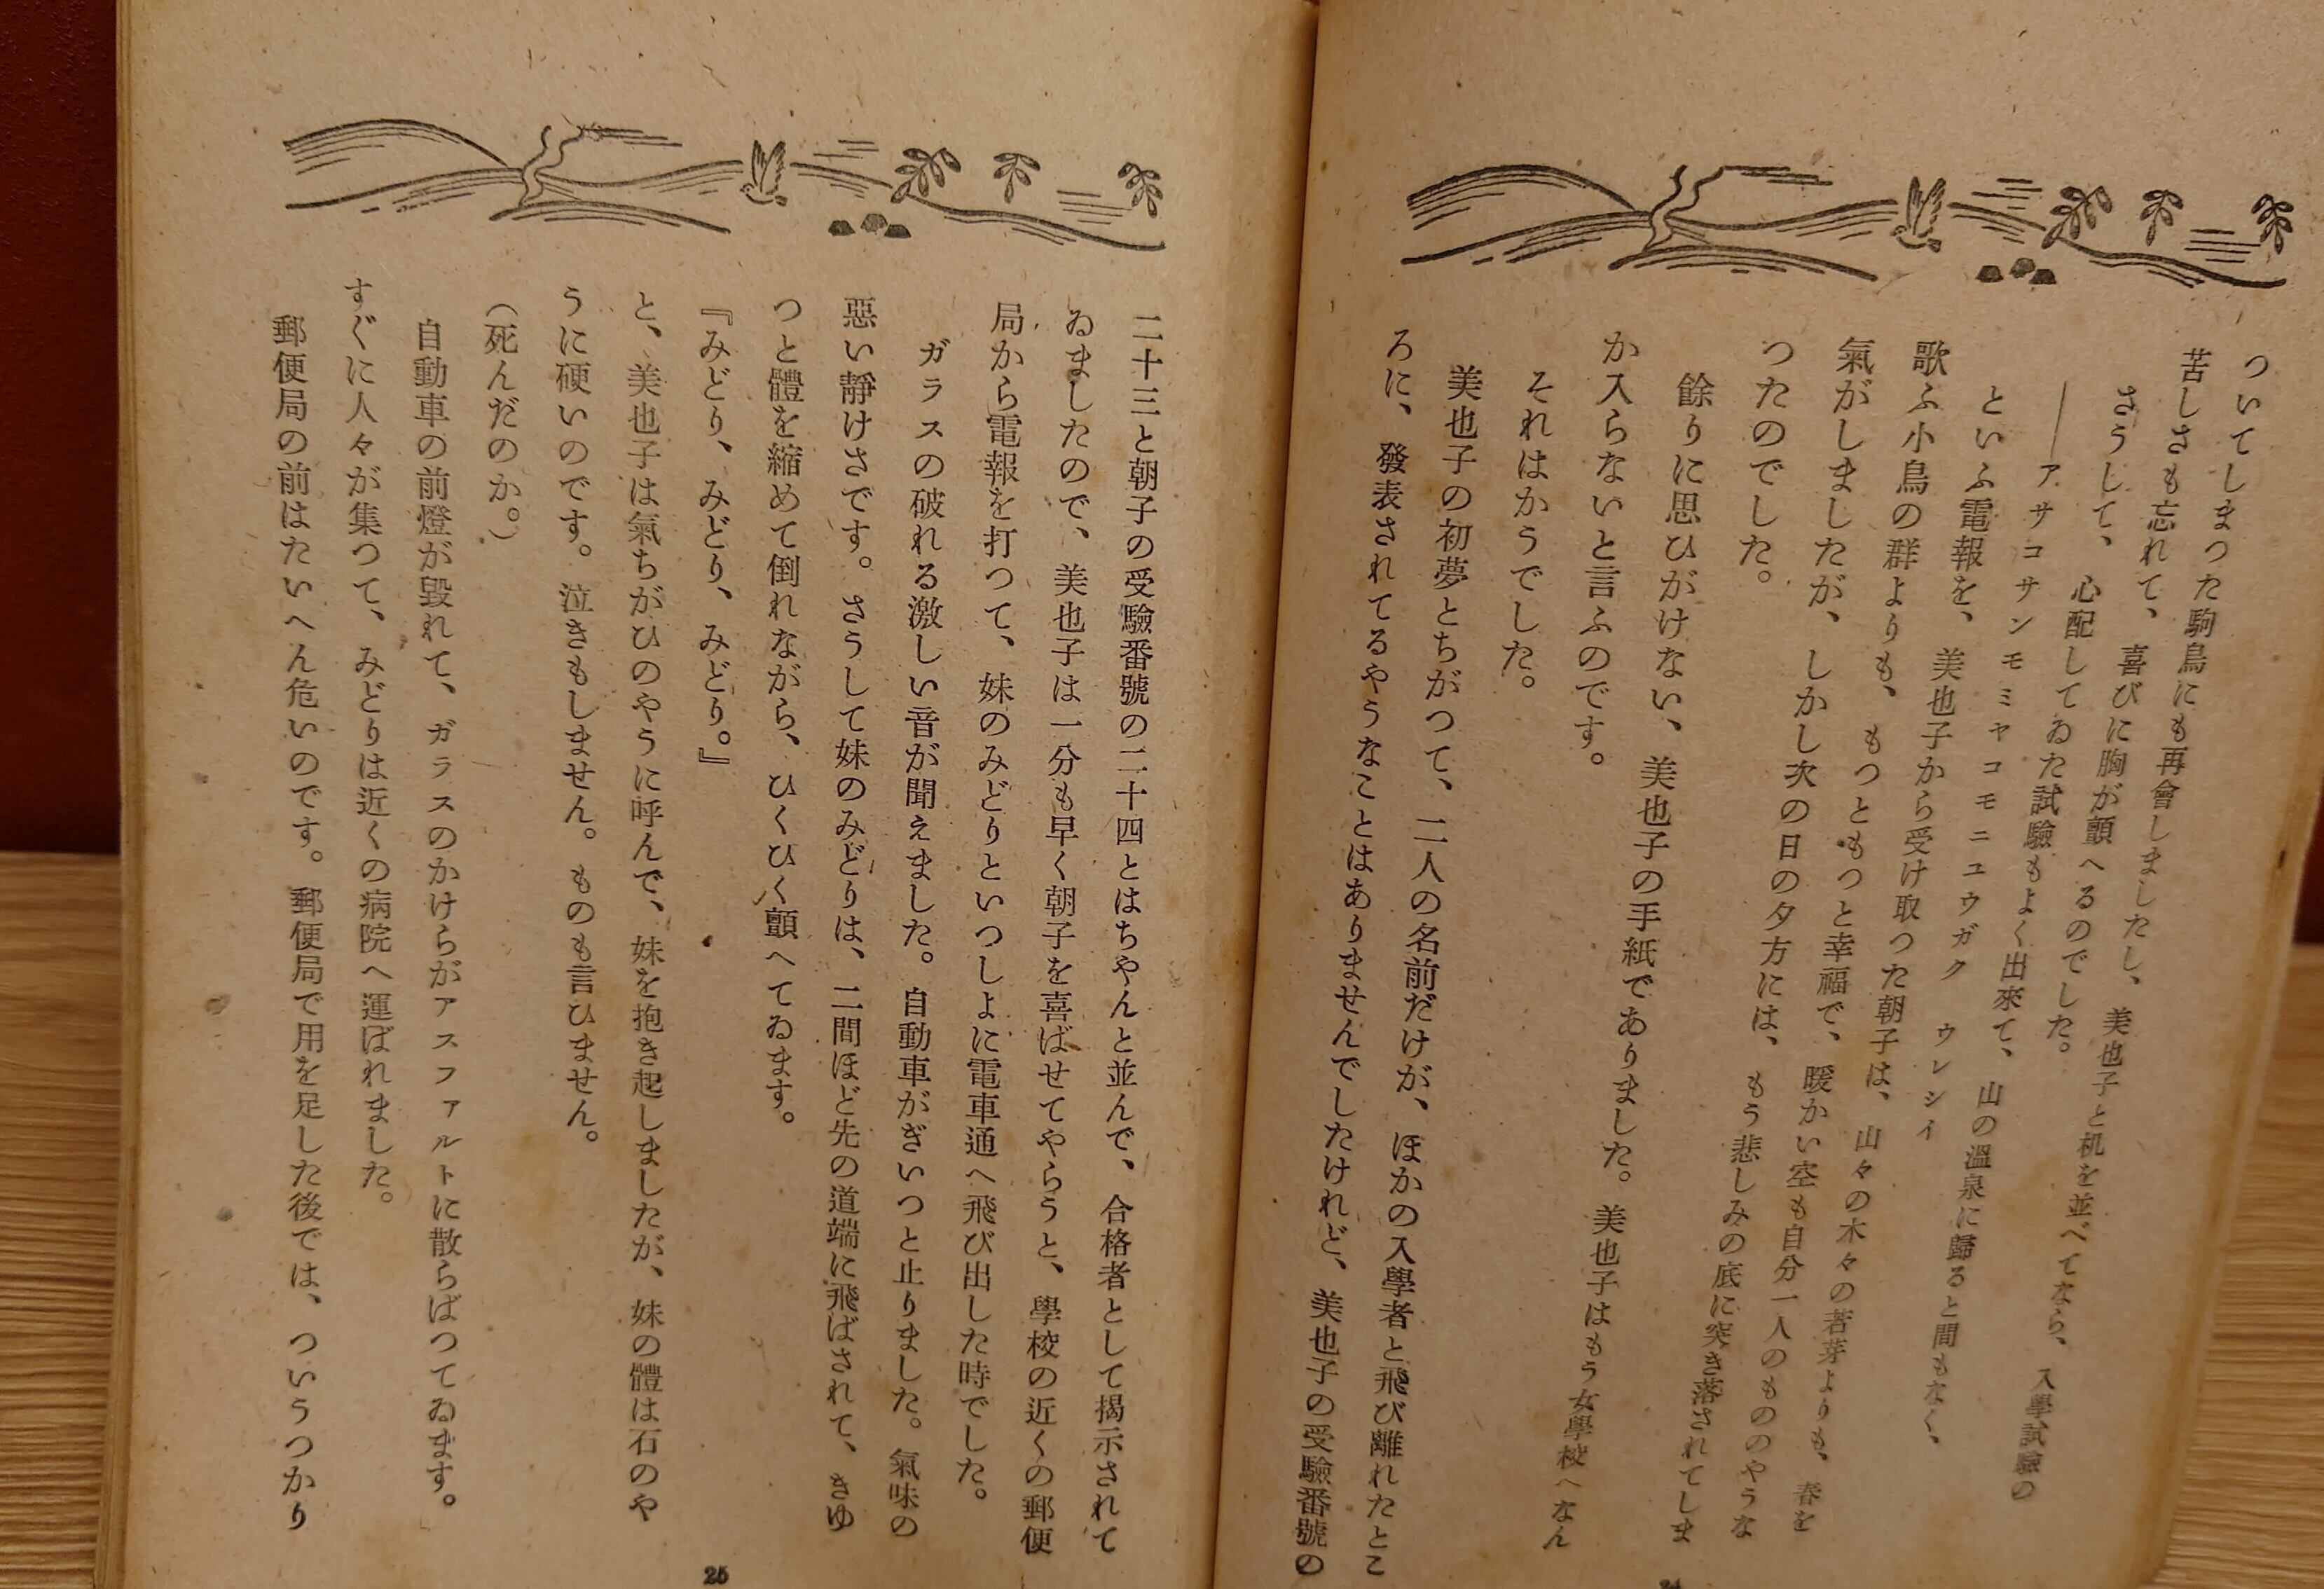 ついてしまつた駒鳥にも再會しましたし、美也子と机を並べてなら、入學試驗の
苦しさも忘れて、喜びに胸が顫へるのでした。
さうして、心配してゐた試驗もよく出來て、山の溫泉に歸ると間もなく、
――アサコサンモミヤコモニユウガク　ウレシイ
といふ電報を、美也子から受け取つた朝子は、山々の木々の若芽よりも、春を
歌ふ小鳥の群よりも、もつともつと幸福で、暖かい空も自分一人のもののやうな
氣がしましたが、しかし次の日の夕方には、もう悲しみの底に突き落されてしま
つたのでした。
餘りに思ひがけない、美也子の手紙でありました。美也子はもう女學校へなん
か入らないと言ふのです。
それはかうでした。
美也子の初夢とちがつて、二人の名前だけが、ほかの入學者と飛び離れたとこ
ろに、發表されてるやうなことはありませんでしたけれど、美也子の受驗番號の
24
二十三と朝子の受驗番號の二十四とはちやんと並んで、合格者として揭示されて
ゐましたので、美也子は一分も早く朝子を喜ばせてやらうと、學校の近くの郵便
局から電報を打つて、妹のみどりといつしよに電車通へ飛び出した時でした。
ガラスの破れる激しい音が聞えました。自動車がぎいつと止りました。氣味の
惡い靜けさです。さうして妹のみどりは、二間ほど先の道端に飛ばされて、きゆ
つと體を縮めて倒れながら、ひくひく顫へてゐます。
『みどり、みどり、みどり。』
と、美也子は氣ちがひのやうに呼んで、妹を抱き起しましたが、妹の體は石のや
うに硬いのです。泣きもしません。ものも言ひません。
（死んだのか。）
自動車の前燈が毀れて、ガラスのかけらがアスファルトに散らばつてゐます。
すぐに人々が集つて、みどりは近くの病院へ運ばれました。
郵便局の前はたいへん危いのです。郵便局で用を足した後では、ついうつかり
25